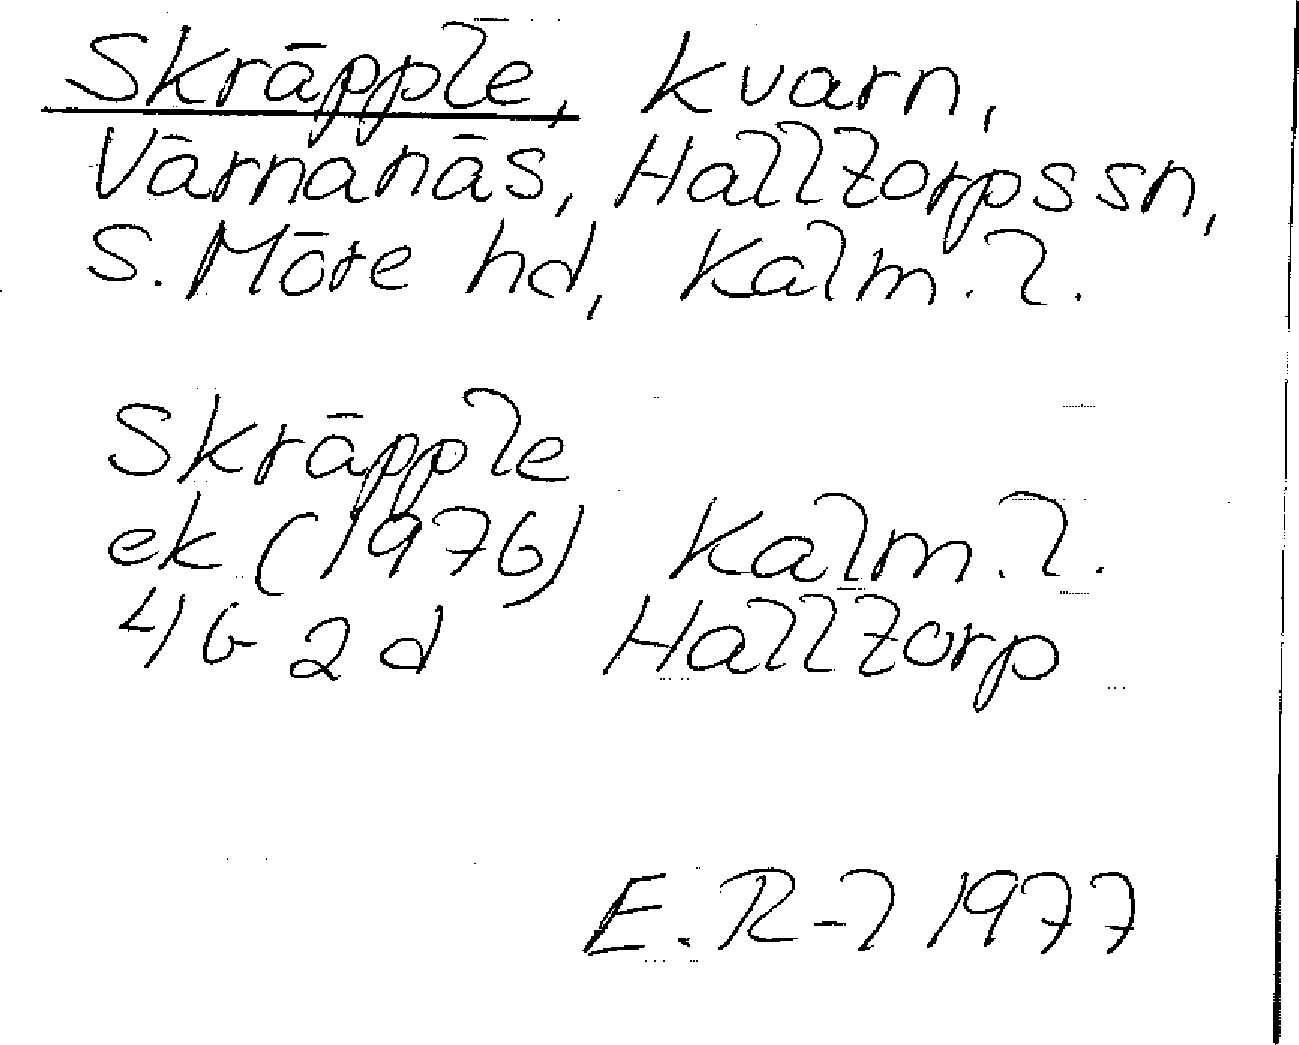 Skräpple, kvarn,
Värnanäs, Halltorps sn,
S. Möre hd, Kalm. l.
Skräpple
ek (1976) Kalm. l.
4G 2d Halltorp
E. R-l 1977